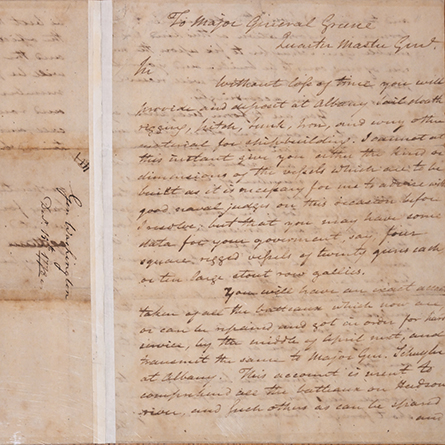 To Major General Greene
Quarter Master Genl
Sir
Without loss of time you will
provide and deposit at Albany sail cloth
rigging, pitch, iron, and every other
material for shipbuilding. I cannot at
this instant give you either the kind or
dimensions of the vessels which are to be
built as it is necessary for me to advise with
good naval judges on this occasion before
I resolve; but that you may have some
data for your government, say four
square rigged vessels of twenty guns each
or ten large stout row gallies.
You will have an exact acct
taken of all the batteaux which now are
or can be repaired and got in order for
service, by the middle of April next, and
transmit the same to Major Gen. Schuyler
at Albany. This account is meant to
comprehend all the batteaux on Hudson
river, and such others as can be spared
Gen Washington